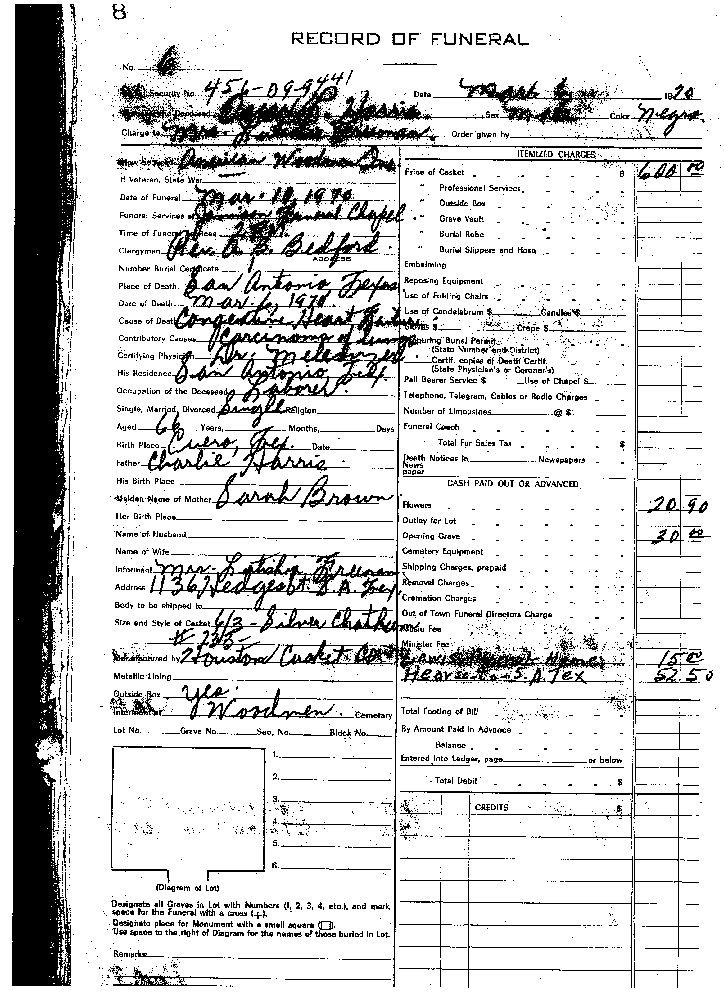 8
RECORD OF FUNERAL
No. 6
Security No. 456-09-9441 Date 1970
Harris Sex Male Color Negro.
Charge to Mrs. Freeman. Order given by
American Woodman Ins
If Veteran, State War
Date of Funeral Mar. 10, 1970
Funeral Services at Funeral Chapel
Time of Funeral Services
Clergyman Rev. A. Bedford
ADDRESS
Number Burial Certificate
Place of Death San Antonio Texas
Date of Death Mar 6, 1970
Cause of Death Congestive Heart Failure
Contributory Causes Carcinoma of Lungs
Certifying Physician Dr.
His Residence San Antonio Tex
Occupation of the Deceased Laborer
Single, Married, Divorced Single Religion
Aged 66 Years, Months, Days
Birth Place Cuero, Tex. Date
Father Charlie Harris
His Birth Place
Maiden Name of Mother Sarah Brown
Her Birth Place
Name of Husband
Name of Wife
Informant Mrs. Freeman
Address 1136 Hedges St. S.A. Tex
Body to be shipped to
Size and Style of Casket 6/3 - Silver
Manufactured by Houston Casket Co
Metallic Lining
Outside Box Yes
Interment at Woodmen Cemetary
Lot No. Grave No. Sec. No. Block No.
1.
2.
3.
4.
5.
6.
(Diagram of Lot)
Designate all Graves in Lot with Numbers (1, 2, 3, 4, etc.), and mark
space for the Funeral with a cross (+).
Designate place for Monument with a small square (□).
Use space to the right of Diagram for the names of those buried in Lot.
Remarks
ITEMIZED CHARGES
Price of Casket $ 600 00
" Professional Services
" Outside Box
" Grave Vault
" Burial Robe
" Burial Slippers and Hose
Embalming
Reposing Equipment
Use of Folding Chairs
Use of Candelabrum $ Candles $
Gloves $ Crepe $
Burial Permit
(State Number and District)
Certif. copies of Death Certif.
(State Physician's or Coroner's)
Pall Bearer Service $ Use of Chapel $
Telephone, Telegram, Cables or Radio Charges
Number of Limousines @ $
Funeral Coach
Total For Sales Tax $
Death Notices in Newspapers
News
paper
CASH PAID OUT OR ADVANCED
Flowers 20 90
Outlay for Lot
Opening Grave 30 00
Cemetery Equipment
Shipping Charges, prepaid
Removal Charges
Cremation Charges
Out of Town Funeral Directors Charge
Music Fee
Minister Fee
Lewis Funeral Home 15 00
Hearse to S.A. Tex 52 50
Total Footing of Bill
By Amount Paid in Advance
Balance
Entered into Ledger, page or below
Total Debit $
CREDITS $